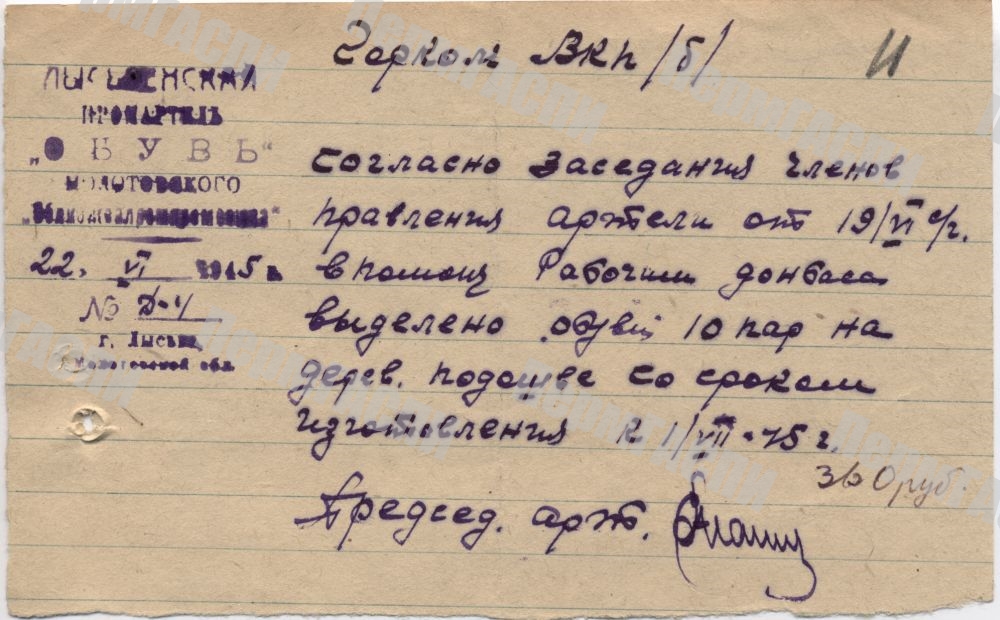 Горком ВКП /б/
11
ЛЫСЬВЕНСКАЯ
ПРОМАРТЕЛЬ
„ОБУВЬ“
МОЛОТОВСКОГО
22. VI 1945 г.
№ Д-4
г. Лысьва,
Молотовской обл.
Согласно заседания членов
правления артели от 19/VI с/г.
в помощ Рабочим донбаса
выделено обуви 10 пар на
дерев. подошве со сроком
изготовления к 1/VII-45 г.
360 руб.
Председ. арт.
ПермГАСПИ